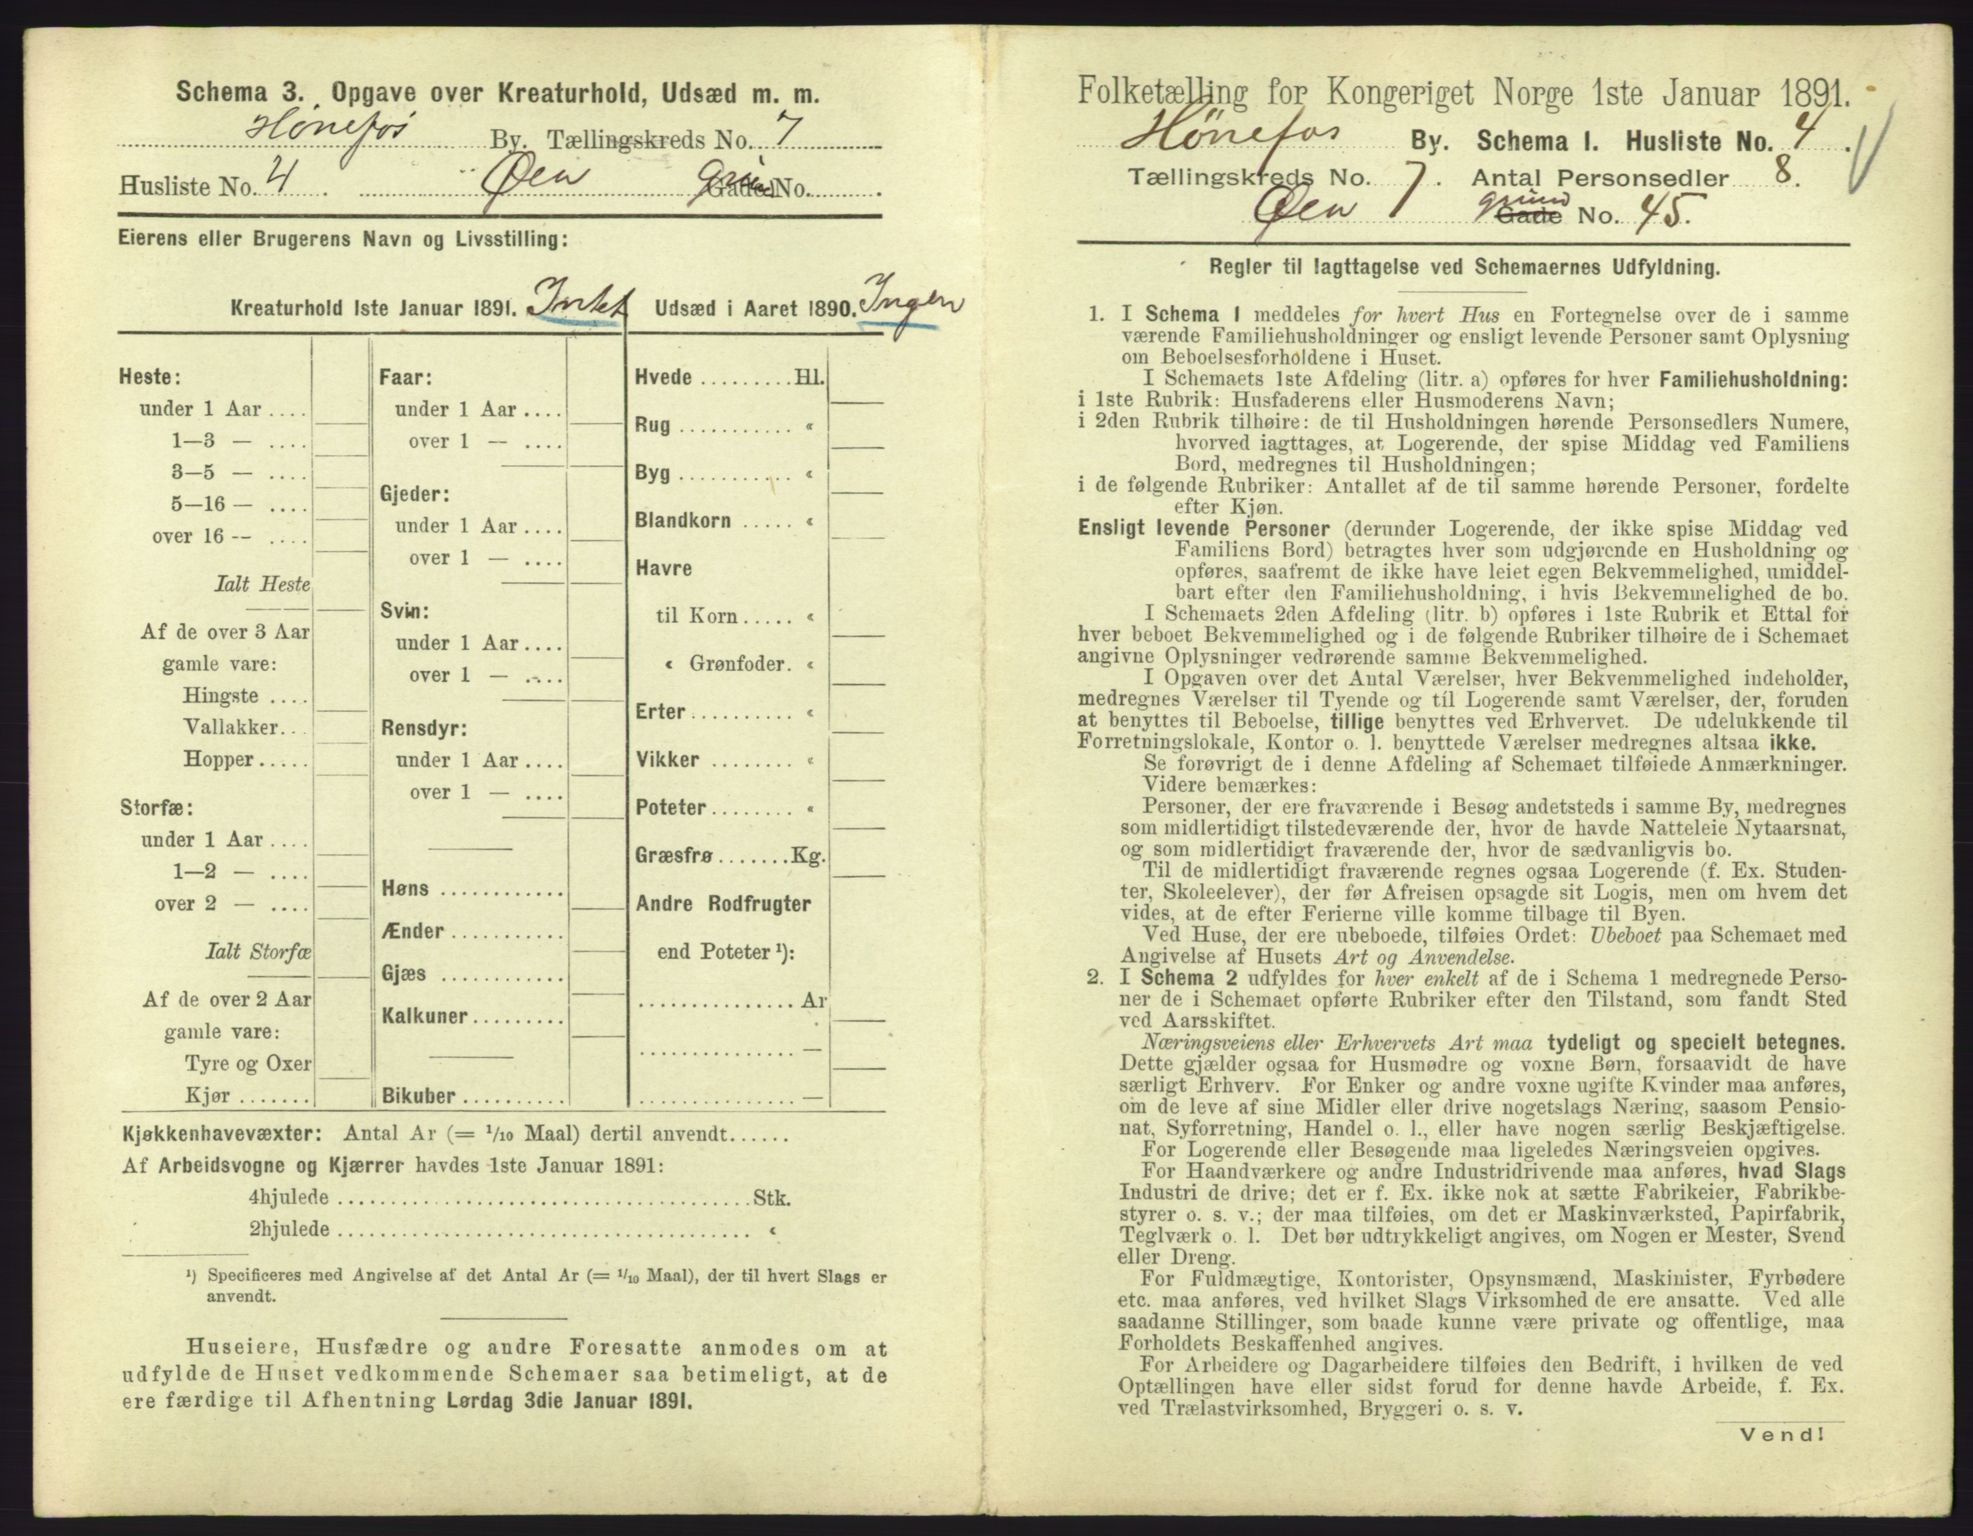 Schema 3. Opgave over Kreaturhold, Udsæd m. m.
Hönefos By. Tællingskreds No. 7
Husliste No. 4 Øen grund Gade No.
Eierens eller Brugerens Navn og Livsstilling:
Kreaturhold 1ste Januar 1891. Intet
Heste:
under 1 Aar ....
1—3 — ....
3—5 — ....
5—16 — ....
over 16 -- ....
Ialt Heste
Af de over 3 Aar
gamle vare:
Hingste ....
Vallakker...
Hopper.....
Storfæ:
under 1 Aar ....
1—2 — ....
over 2 — ....
Ialt Storfæ
Af de over 2 Aar
gamle vare:
Tyre og Oxer
Kjør .......
Faar:
under 1 Aar ....
over 1 — ....
Gjeder:
under 1 Aar ....
over 1 — ....
Svin:
under 1 Aar....
over 1 — ....
Rensdyr:
under 1 Aar ....
over 1 — ....
Høns ...........
Ænder ...........
Gjæs ...........
Kalkuner.........
Bikuber ..........
Udsæd i Aaret 1890. Ingen
Hvede .........Hl.
Rug ........... «
Byg ........... «
Blandkorn ..... «
Havre
til Korn..... «
« Grønfoder. «
Erter.......... «
Vikker ........ «
Poteter........ «
Græsfrø.......Kg.
Andre Rodfrugter
end Poteter ¹):
............... Ar
............... —
............... —
Kjøkkenhavevæxter: Antal Ar (= 1/10 Maal) dertil anvendt......
Af Arbeidsvogne og Kjærrer havdes 1ste Januar 1891:
4hjulede ........................................Stk.
2hjulede ........................................ «
¹) Specificeres med Angivelse af det Antal Ar (= 1/10 Maal), der til hvert Slags er
anvendt.
Huseiere, Husfædre og andre Foresatte anmodes om at
udfylde de Huset vedkommende Schemaer saa betimeligt, at de
ere færdige til Afhentning Lørdag 3die Januar 1891.
Folketælling for Kongeriget Norge 1ste Januar 1891.
Hönefos By. Schema I. Husliste No. 4.
Tællingskreds No. 7. Antal Personsedler 8.
Øen grund Gade No. 45.
Regler til Iagttagelse ved Schemaernes Udfyldning.
1. I Schema I meddeles for hvert Hus en Fortegnelse over de i samme
værende Familiehusholdninger og ensligt levende Personer samt Oplysning
om Beboelsesforholdene i Huset.
I Schemaets 1ste Afdeling (litr. a) opføres for hver Familiehusholdning:
i 1ste Rubrik: Husfaderens eller Husmoderens Navn;
i 2den Rubrik tilhøire: de til Husholdningen hørende Personsedlers Numere,
hvorved iagttages, at Logerende, der spise Middag ved Familiens
Bord, medregnes til Husholdningen;
i de følgende Rubriker: Antallet af de til samme hørende Personer, fordelte
efter Kjøn.
Ensligt levende Personer (derunder Logerende, der ikke spise Middag ved
Familiens Bord) betragtes hver som udgjørende en Husholdning og
opføres, saafremt de ikke have leiet egen Bekvemmelighed, umiddel-
bart efter den Familiehusholdning, i hvis Bekvemmelighed de bo.
I Schemaets 2den Afdeling (litr. b) opføres i 1ste Rubrik et Ettal for
hver beboet Bekvemmelighed og i de følgende Rubriker tilhøire de i Schemaet
angivne Oplysninger vedrørende samme Bekvemmelighed.
I Opgaven over det Antal Værelser, hver Bekvemmelighed indeholder,
medregnes Værelser til Tyende og til Logerende samt Værelser, der, foruden
at benyttes til Beboelse, tillige benyttes ved Erhvervet. De udelukkende til
Forretningslokale, Kontor o. l. benyttede Værelser medregnes altsaa ikke.
Se forøvrigt de i denne Afdeling af Schemaet tilføiede Anmærkninger.
Videre bemærkes:
Personer, der ere fraværende i Besøg andetsteds i samme By, medregnes
som midlertidigt tilstedeværende der, hvor de havde Natteleie Nytaarsnat,
og som midlertidigt fraværende der, hvor de sædvanligvis bo.
Til de midlertidigt fraværende regnes ogsaa Logerende (f. Ex. Studen-
ter, Skoleelever), der før Afreisen opsagde sit Logis, men om hvem det
vides, at de efter Ferierne ville komme tilbage til Byen.
Ved Huse, der ere ubeboede, tilføies Ordet: Ubeboet paa Schemaet med
Angivelse af Husets Art og Anvendelse.
2. I Schema 2 udfyldes for hver enkelt af de i Schema 1 medregnede Perso-
ner de i Schemaet opførte Rubriker efter den Tilstand, som fandt Sted
ved Aarsskiftet.
Næringsveiens eller Erhvervets Art maa tydeligt og specielt betegnes.
Dette gjælder ogsaa for Husmødre og voxne Børn, forsaavidt de have
særligt Erhverv. For Enker og andre voxne ugifte Kvinder maa anføres,
om de leve af sine Midler eller drive nogetslags Næring, saasom Pensio-
nat, Syforretning, Handel o. l., eller have nogen særlig Beskjæftigelse.
For Logerende eller Besøgende maa ligeledes Næringsveien opgives.
For Haandværkere og andre Industridrivende maa anføres, hvad Slags
Industri de drive; det er f. Ex. ikke nok at sætte Fabrikeier, Fabrikbe-
styrer o. s. v.; der maa tilføies, om det er Maskinværksted, Papirfabrik,
Teglværk o. l. Det bør udtrykkeligt angives, om Nogen er Mester, Svend
eller Dreng.
For Fuldmægtige, Kontorister, Opsynsmænd, Maskinister, Fyrbødere
etc. maa anføres, ved hvilket Slags Virksomhed de ere ansatte. Ved alle
saadanne Stillinger, som baade kunne være private og offentlige, maa
Forholdets Beskaffenhed angives.
For Arbeidere og Dagarbeidere tilføies den Bedrift, i hvilken de ved
Optællingen have eller sidst forud for denne havde Arbeide, f. Ex.
ved Trælastvirksomhed, Bryggeri o. s. v.
Vend!